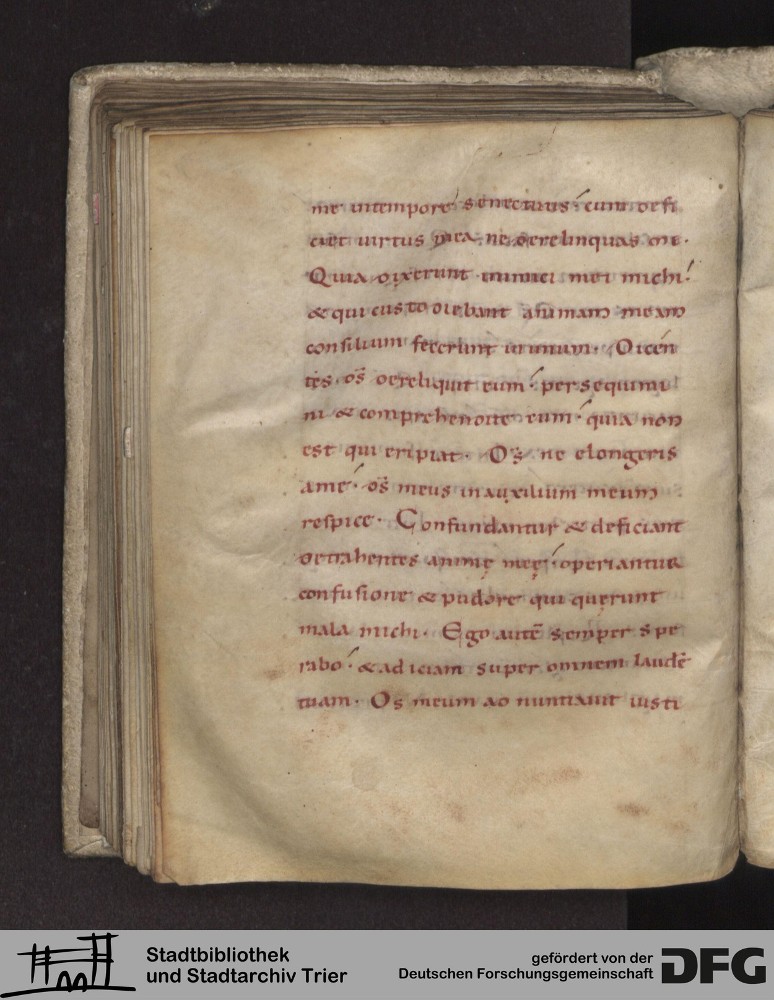 me in tempore senectutis: cum defi
ciet uirtus mea. ne derelinquas me.
Quia dixerunt inimici mei michi:
& qui custodiebant animam meam
consilium fecerunt in unum. Dicen
tes. ds̄ dereliquit eum: persequimi
ni & comprehendite eum: quia non
est qui eripiat. Ds̄ ne elongeris
a me: ds̄ meus in auxilium meum
respice. Confundantur & deficiant
detrahentes animę meę: operiantur
confusione & pudore qui querunt
mala michi. Ego autē semper spe
rabo: & adiciam super omnem laudē
tuam. Os meum adnuntiauit iusti
Stadtbibliothek
und Stadtarchiv Trier
gefördert von der
Deutschen Forschungsgemeinschaft
DFG